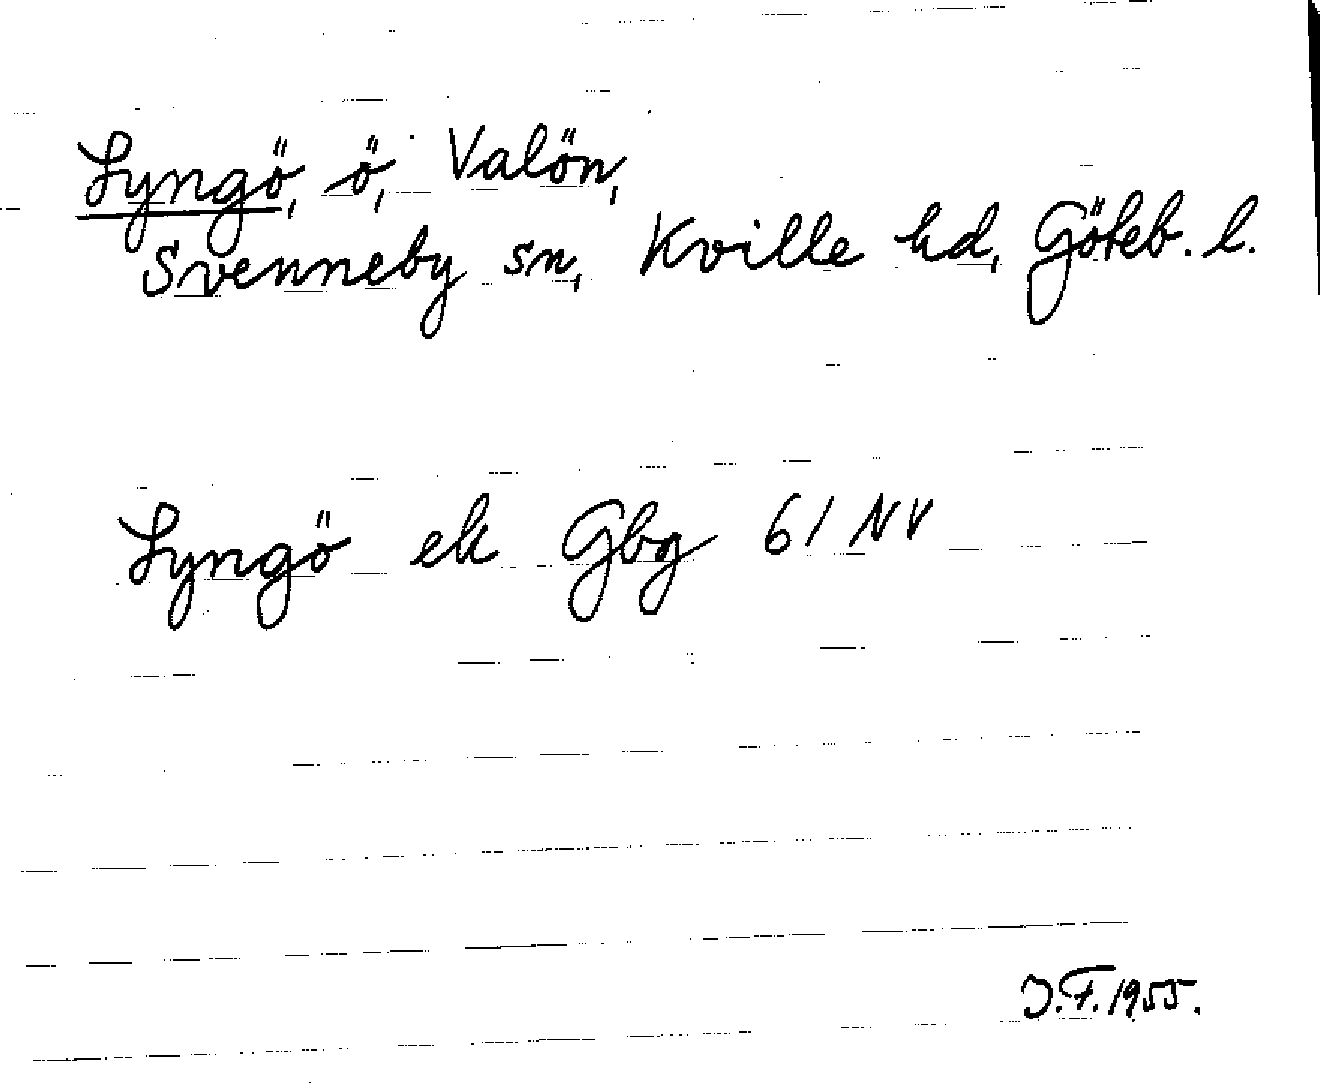 Lyngö, ö, Valön,
Svenneby sn, Kville hd, Göteb. l.
Lyngö ek Gbg 61 NV
J.F. 1955.